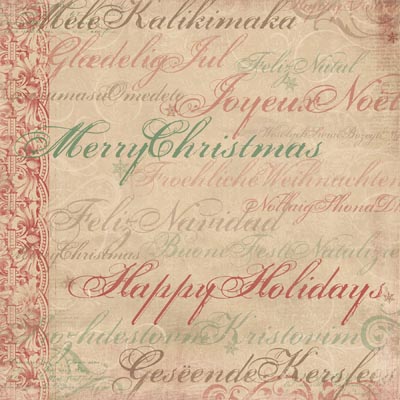 Mele Kalikimaka
Glædelig Jul
Feliz Natal
umasu Omedeto
Joyeux Noel
Merry Christmas
Froehliche Weihnachten
Nollaig Shona D
Feliz Navidad
ry Christmas
Buone Feste Natalizie
Happy Holidays
ozhdestovm Kristovim
Geseënde Kersfees